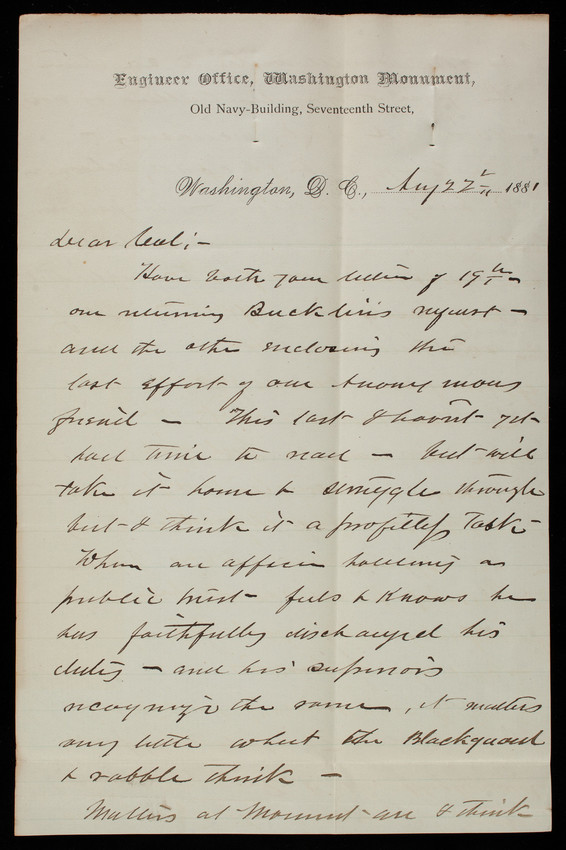 Engineer Office, Washington Monument,
Old Navy-Building, Seventeenth Street,
Washington, D. C., Aug 22d 1881
dear Col; –
Have both your letters of 19th –
one returning Bucklin's request –
and the other enclosing the
last effort of our Anonymous
friend – This last I haven't yet
had time to read – but will
take it home & struggle through
but I think it a profitless Task –
When an officer holding a
public trust feels & knows he
has faithfully discharged his
duty – and his superiors
recognize the same, it matters
very little what the Blackguard
& rabble think –
Matters at Monument are I think